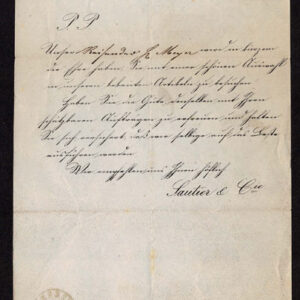 P. P.
Unser Reisender H. Meyer wird in kurzem
die Ehre haben Sie mit einer schönen Auswahl
in unseren bekannten Artikeln zu besuchen
Haben Sie die Güte denselben mit Ihren
schätzbaren Aufträgen zu erfreuen und halten
Sie sich versichert, dass wir selbige auf das Beste
ausführen werden
Wir empfehlen uns Ihnen höflich
Sautier & Cie